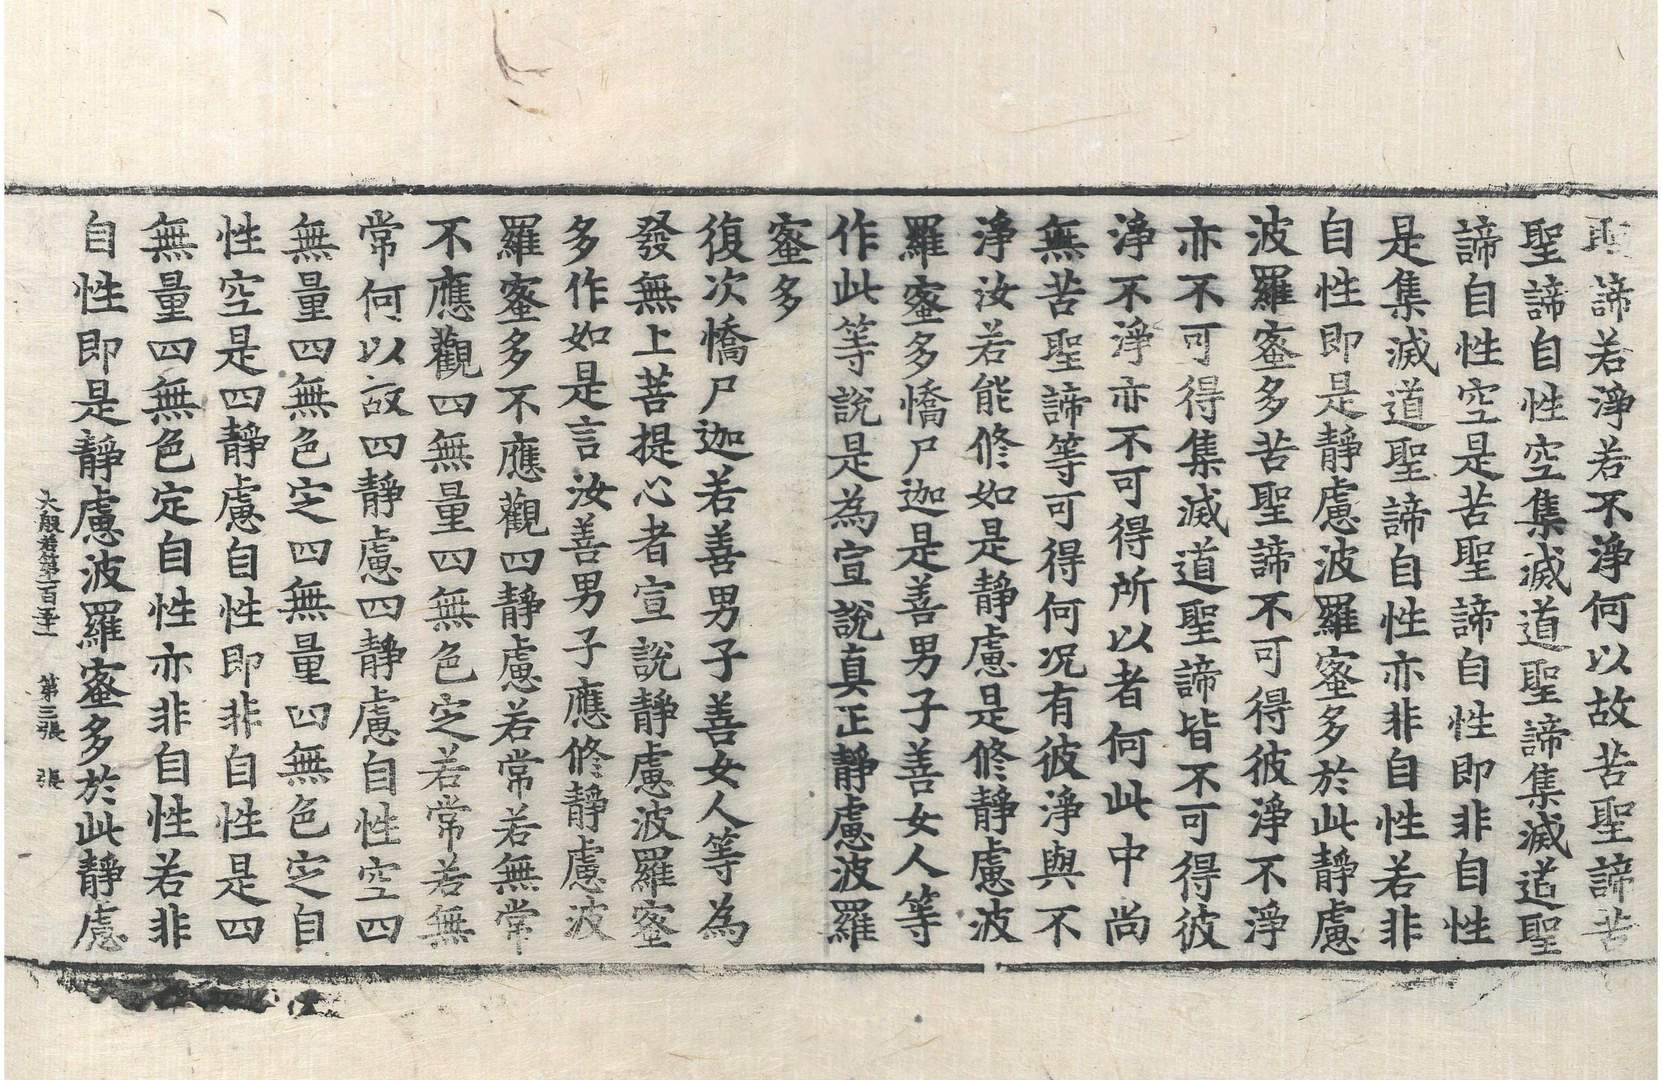 聖諦若淨若不淨何以故苦聖諦苦
聖諦自性空集滅道聖諦集滅道聖
諦自性空是苦聖諦自性即非自性
是集滅道聖諦自性亦非自性若非
自性即是靜慮波羅蜜多於此靜慮
波羅蜜多苦聖諦不可得彼淨不淨
亦不可得集滅道聖諦皆不可得彼
淨不淨亦不可得所以者何此中尚
無苦聖諦等可得何況有彼淨與不
淨汝若能修如是靜慮是修靜慮波
羅蜜多憍尸迦是善男子善女人等
作此等說是為宣說真正靜慮波羅
蜜多
復次憍尸迦若善男子善女人等為
發無上菩提心者宣說靜慮波羅蜜
多作如是言汝善男子應修靜慮波
羅蜜多不應觀四靜慮若常若無常
不應觀四無量四無色定若常若無
常何以故四靜慮四靜慮自性空四
無量四無色定四無量四無色定自
性空是四靜慮自性即非自性是四
無量四無色定自性亦非自性若非
自性即是靜慮波羅蜜多於此靜慮
大般若第一百五十一 第三張 張